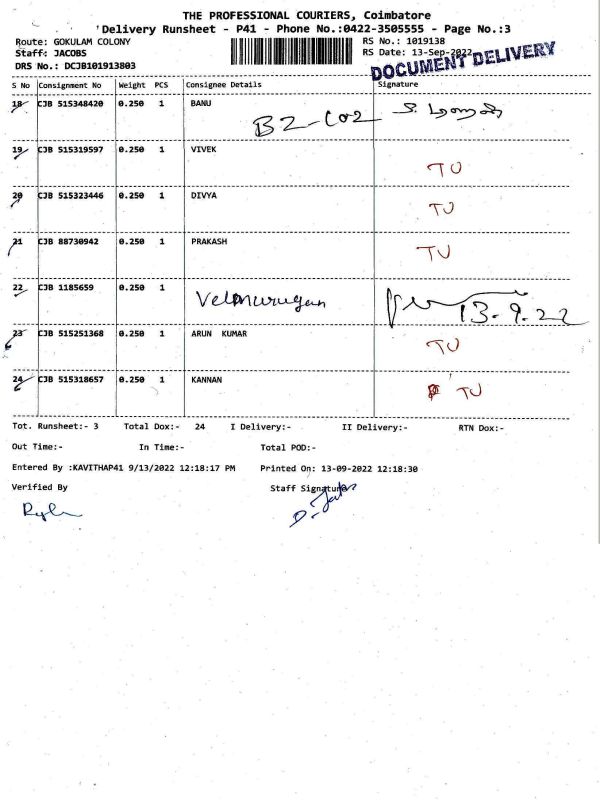 THE PROFESSIONAL COURIERS, Coimbatore
'Delivery Runsheet - P41 - Phone No.:0422-3505555 - Page No.:3
Route: GOKULAM COLONY RS No.: 1019138
Staff: JACOBS RS Date: 13-Sep-2022
DRS No.: DCJB101913803 DOCUMENT DELIVERY
S No Consignment No Weight PCS Consignee Details Signature
18 CJB 515348420 0.250 1 BANU
B2-C02
19 CJB 515319597 0.250 1 VIVEK
TU
20 CJB 515323446 0.250 1 DIVYA
TU
21 CJB 88730942 0.250 1 PRAKASH
TU
22 CJB 1185659 0.250 1
Velmurugan 13.9.22
23 CJB 515251368 0.250 1 ARUN KUMAR
TU
24 CJB 515318657 0.250 1 KANNAN
TU
Tot. Runsheet:- 3 Total Dox:- 24 I Delivery:- II Delivery:- RTN Dox:-
Out Time:- In Time:- Total POD:-
Entered By :KAVITHAP41 9/13/2022 12:18:17 PM Printed On: 13-09-2022 12:18:30
Verified By Staff Signature